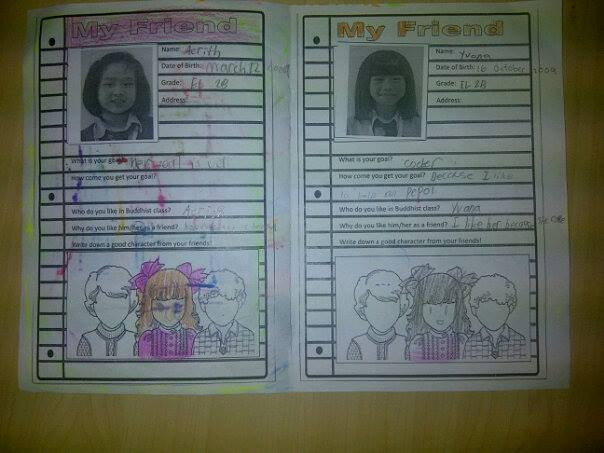 My Friend
Name: Aerith
Date of Birth: March 12 2009
Grade: EL 2B
Address:
What is your goal?
How come you get your goal?
Who do you like in Buddhist class? Aerith
Why do you like him/her as a friend?
Write down a good character from your friends!
My Friend
Name: Yvana
Date of Birth: 16 October 2009
Grade: EL 2B
Address:
What is your goal? cocter
How come you get your goal? Because I like
to help Pepol
Who do you like in Buddhist class? Yvana
Why do you like him/her as a friend? I like her because
Write down a good character from your friends!